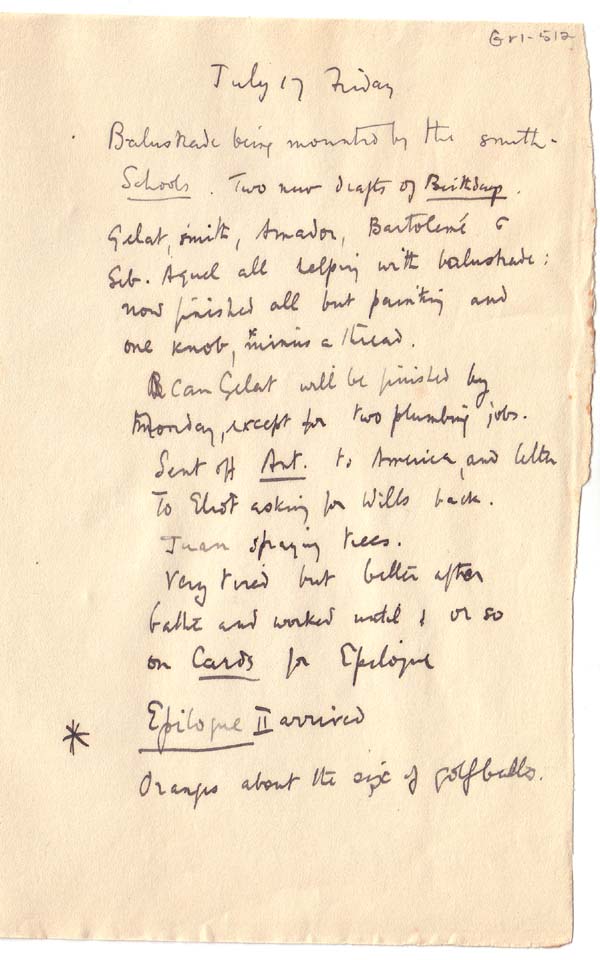 Gr1-512
July 17 Friday
Balustrade being mounted by the smith.
Schools. Two new drafts of Birthdays.
Gelat, smith, Amador, Bartolemé &
Seb. Aguel all helping with balustrade:
now finished all but painting and
one knob, minus a thread.
Can Gelat will be finished by
Monday, except for two plumbing jobs.
Sent off Ant. to America, and letter
To Eliot asking for Wills back.
Juan spraying trees.
Very tired but better after
bathe and worked until 1 or so
on Cards for Epilogue
* Epilogue II arrived
Oranges about the size of golfballs.